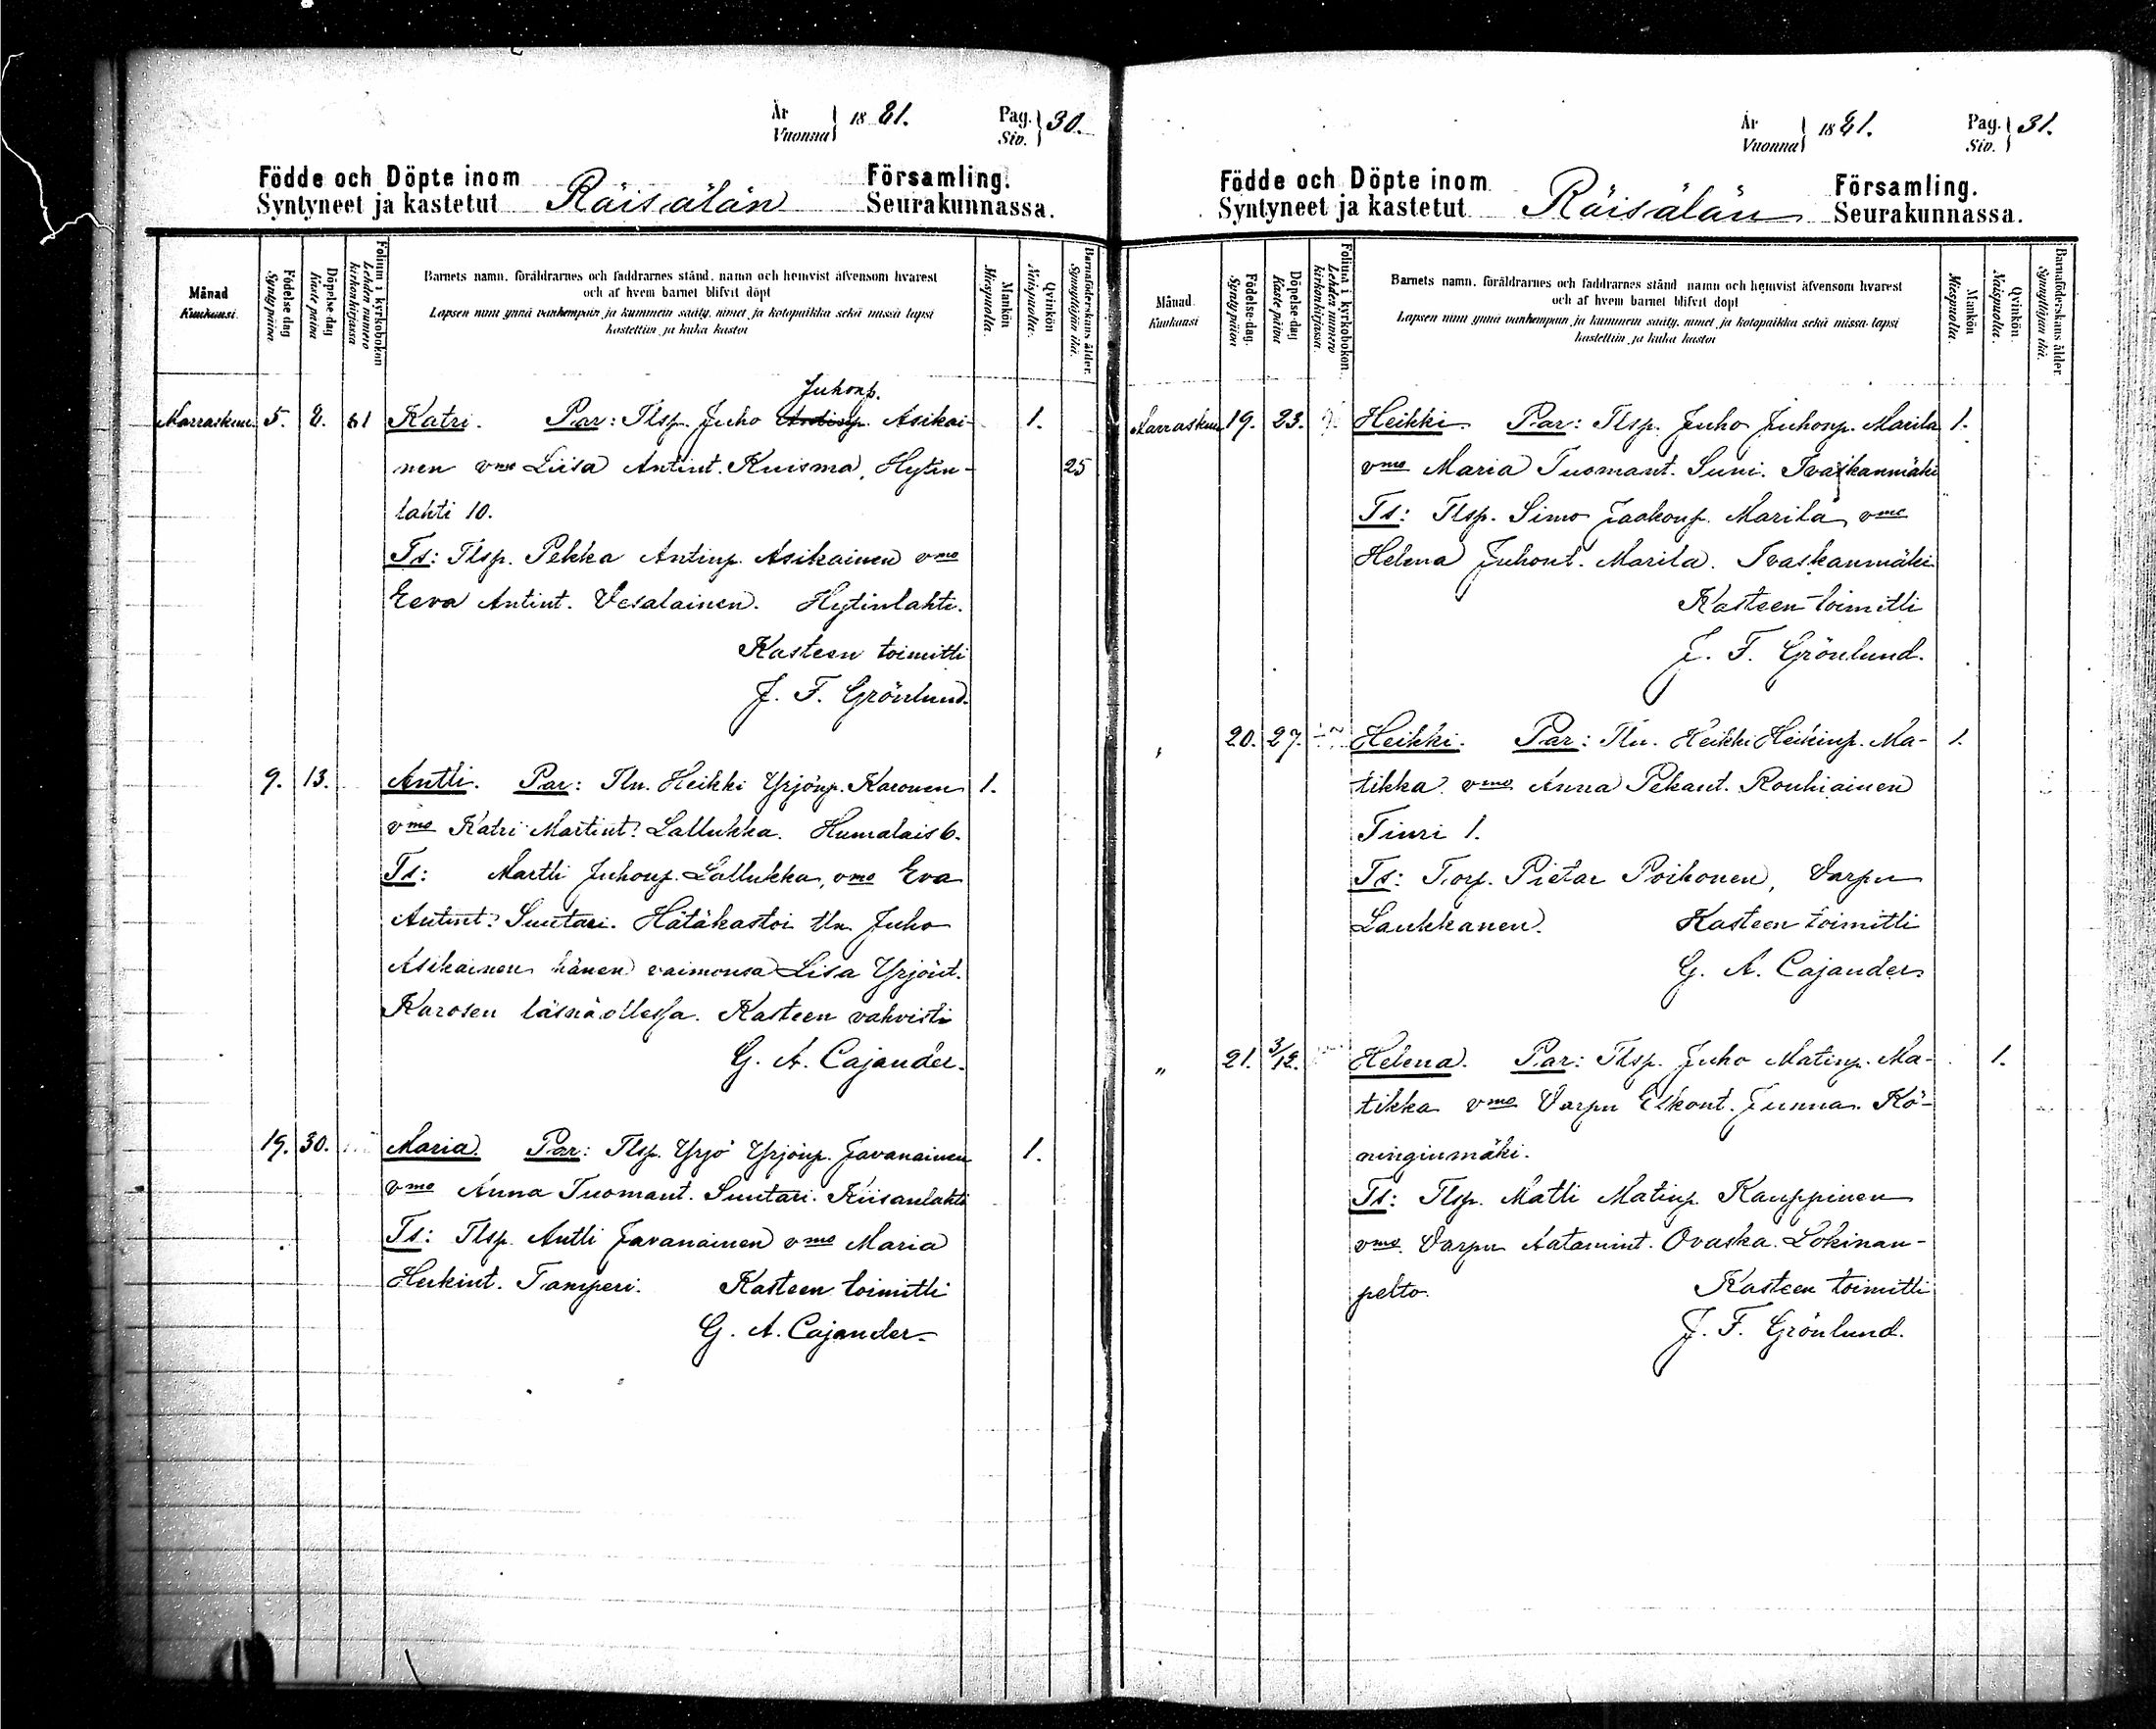 År
Vuonna } 1881. Pag.
Siv. } 30.
Födde och Döpte inom Församling.
Syntyneet ja kastetut Räisälän Seurakunnassa.
Månad
Kuukausi.
Födelse-dag
Syntypäivä
Döpelse-dag
Kaste päivä
Folium i kyrkoboken
Lehden numero kirkonkirjassa
Barnets namn, föräldrarnes och faddrarnes stånd, namn och hemvist äfvensom hvarest
och af hvem barnet blifvit döpt
Lapsen nimi ynnä vanhempain ja kummein sääty, nimet ja kotopaikka sekä missä lapsi
kastettiin ja kuka kastoi
Mankön
Miespuolia.
Qvinkön
Naispuolia.
Barnaföderskans ålder.
Synnyttäjän ikä.
Juhonp.
Marraskuu 5. 8. 81 Katri. Par: Tlsp. Juho Antinp. Asikai- 1.
nen vmo Liisa Antint. Kuisma, Hytin- 25
lahti 10.
Ts: Tlsp. Pekka Antinp. Asikainen vmo
Eeva Antint. Vesalainen. Hytinlahti.
Kasteen toimitti
J. F. Grönlund.
9. 13. Antti. Par: Tln. Heikki Yrjönp. Karonen 1.
vmo Katri Martint. Lallukka. Humalais 6.
Ts: Martti Juhonp. Lallukka, vmo Eva
Antint. Suutari. Hätäkastoi tln. Juho
Asikainen hänen vaimonsa Lisa Yrjönt.
Karosen läsnäollessa. Kasteen vahvisti
G. A. Cajander.
19. 30. Maria. Par: Tlsp. Yrjö Yrjönp. Javanainen 1.
vmo Anna Tuomant. Suutari. Kiisanlahti
Ts: Tlsp. Antti Javanainen vmo Maria
Heikint. Tamperi. Kasteen toimitti
G. A. Cajander.
År
Vuonna } 1881. Pag.
Siv. } 31.
Födde och Döpte inom Församling.
Syntyneet ja kastetut Räisälän Seurakunnassa.
Månad
Kuukausi
Födelse-dag.
Syntypäivä
Döpelse-dag
Kaste päivä
Folium i kyrkoboken
Lehden numero kirkonkirjassa.
Barnets namn, föräldrarnes och faddrarnes stånd namn och hemvist äfvensom hvarest
och af hvem barnet blifvit döpt
Lapsen nimi ynnä vanhempain ja kummein sääty, nimet ja kotopaikka sekä missä lapsi
kastettiin ja kuka kastoi
Mankön
Miespuolia.
Qvinkön.
Naispuolia.
Barnaföderskans ålder
Synnyttäjän ikä.
Marraskuu 19. 23. Heikki Par: Tlsp. Juho Juhonp. Marila 1.
vmo Maria Tuomant. Suni. Ivaskanmäki
Ts: Tlsp. Simo Jaakonp. Marila, vmo
Helena Juhont. Marila. Ivaskanmäki
Kasteen toimitti
J. F. Grönlund.
20. 27. Heikki. Par: Tln. Heikki Heikinp. Ma- 1.
tikka vmo Anna Pekant. Rouhiainen
Tiuri 1.
Ts: Torp. Pietar Poikonen, Varpu
Laukkanen. Kasteen toimitti
G. A. Cajander.
" 21. 3/12. Helena. Par: Tlsp. Juho Matinp. Ma- 1.
tikka vmo Varpu Eskont. Junna. Kö-
ninginmäki.
Ts: Tlsp. Matti Matinp. Kauppinen
vmo. Varpu Aatamint. Ovaska. Lokinan-
pelto. Kasteen toimitti
J. F. Grönlund.